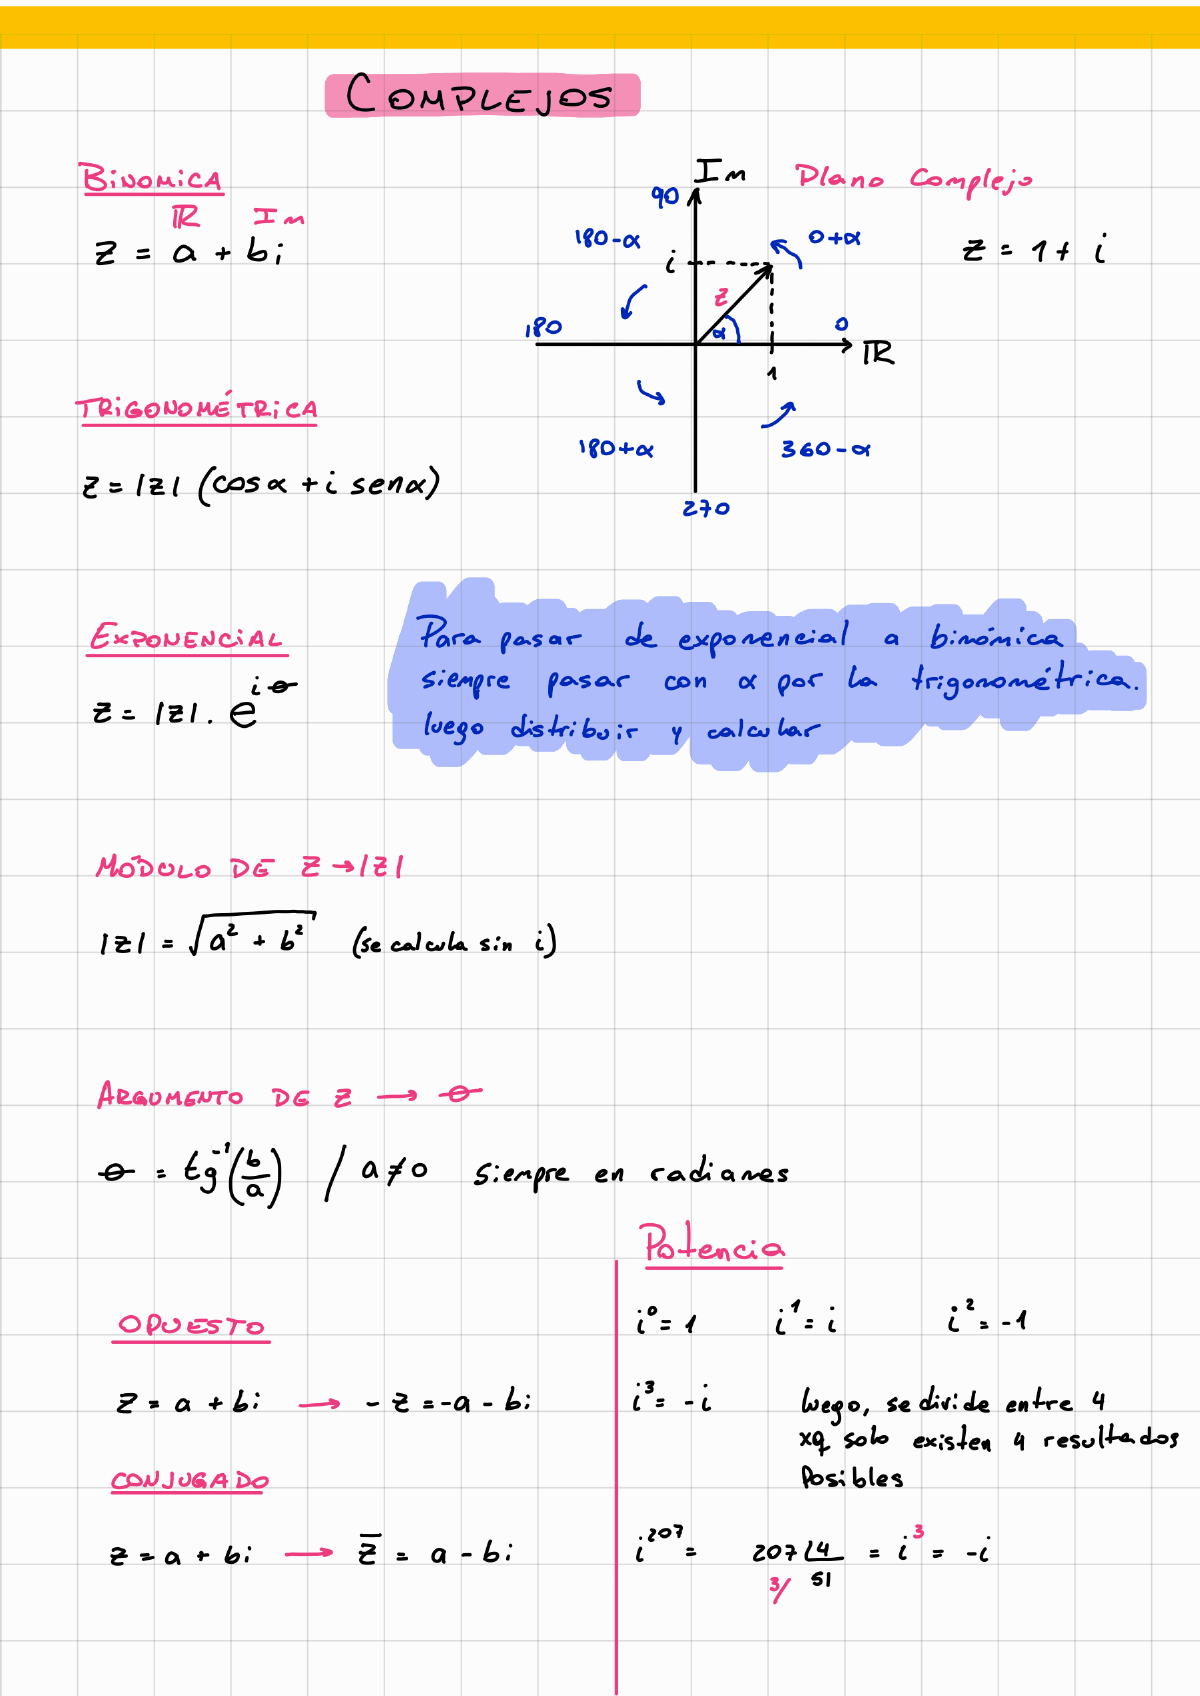 COMPLEJOS
BINOMICA
IR Im
z = a + bi
Im
Plano Complejo
90
180-α
0+α
i
z = 1 + i
z
α
180
0
IR
1
180+α
360-α
270
TRIGONOMÉTRICA
z = |z| (cos α + i sen α)
EXPONENCIAL
z = |z| . e^iθ
Para pasar de exponencial a binómica
siempre pasar con α por la trigonométrica.
luego distribuir y calcular
MÓDULO DE z → |z|
|z| = √a² + b² (se calcula sin i)
ARGUMENTO DE z → θ
θ = tg⁻¹(b/a) / a ≠ 0 siempre en radianes
OPUESTO
z = a + bi → - z = -a - bi
CONJUGADO
z = a + bi → z̅ = a - bi
Potencia
i⁰ = 1 i¹ = i i² = -1
i³ = -i
luego, se divide entre 4
xq solo existen 4 resultados
Posibles
i²⁰⁷ = 207 | 4 = i³ = -i
3/ 51